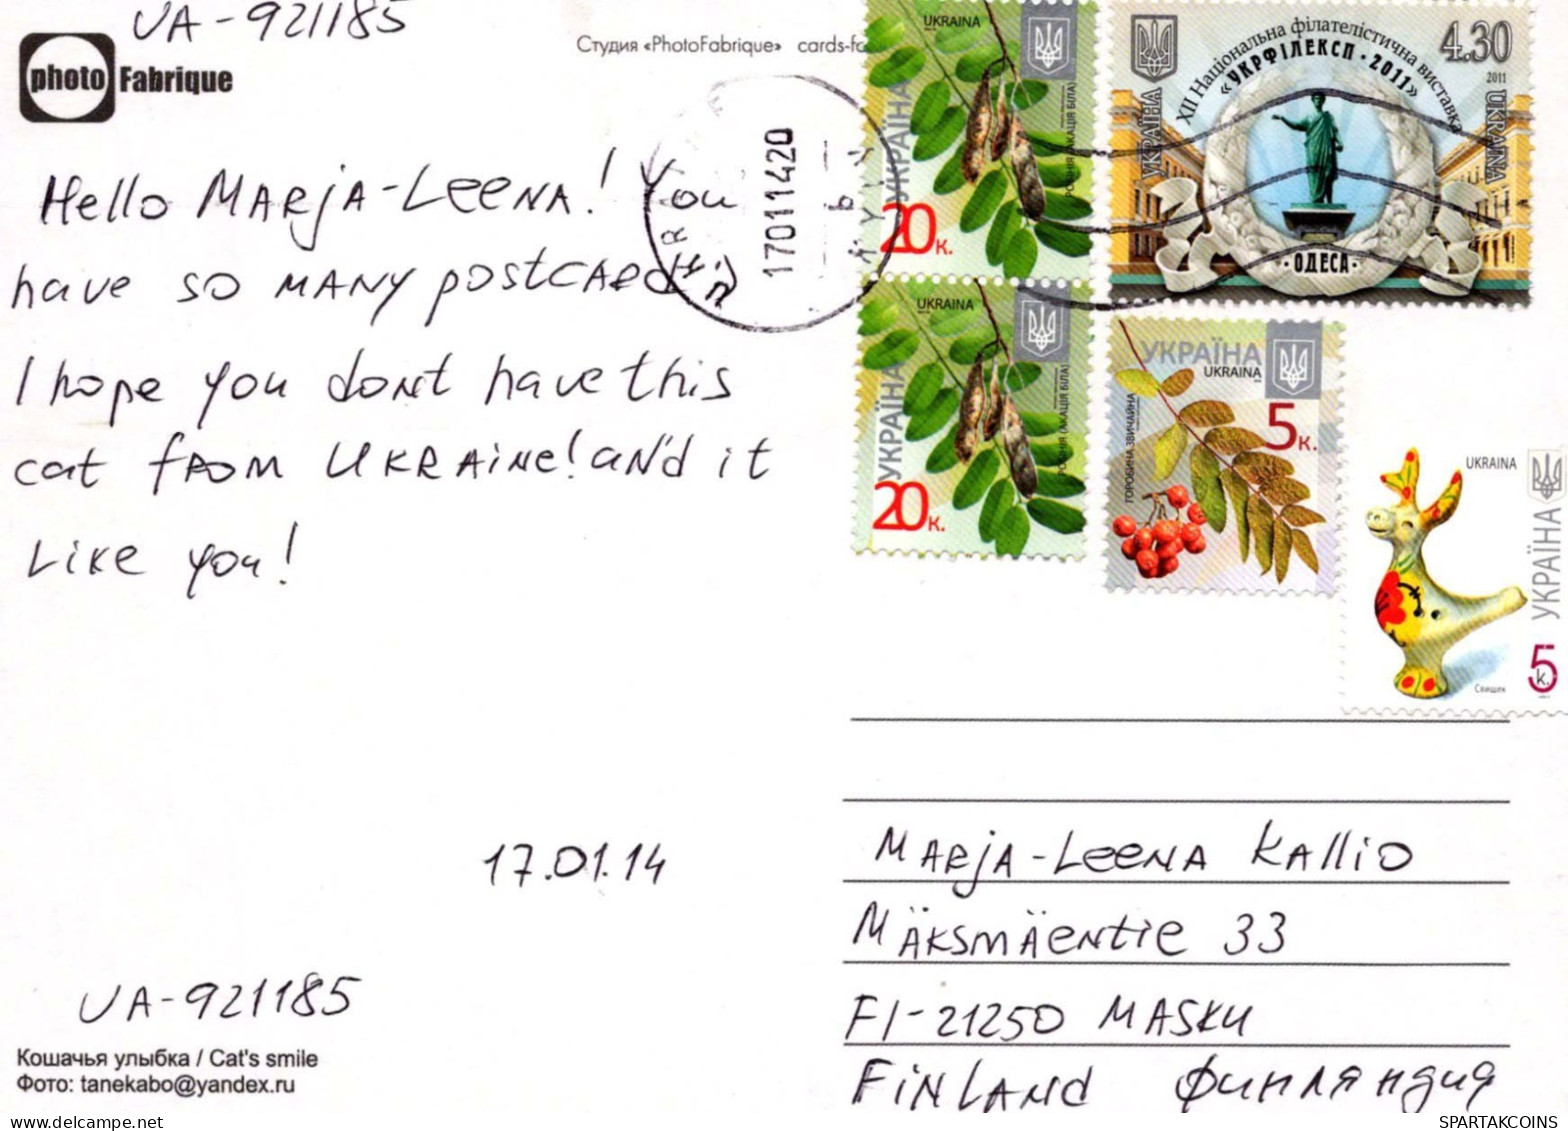 UA-921185
photo Fabrique
Студия «PhotoFabrique» cards-fa
Hello Marja-Leena! You
have so many postcards
I hope you dont have this
cat from Ukraine! and it
Like you!
17.01.14
UA-921185
Кошачья улыбка / Cat's smile
Фото: tanekabo@yandex.ru
UKRAINA
УКРАЇНА
20к.
17011420
XII Національна філателістична виставка
«УКРФІЛЕКСП · 2011»
4.30
2011
УКРАЇНА
UKRAINA
· ОДЕСА ·
UKRAINA
УКРАЇНА
(АКАЦІЯ БІЛА)
20к.
УКРАЇНА
UKRAINA
ГОРОБИНА ЗВИЧАЙНА
5к.
UKRAINA
УКРАЇНА
Свищик
5к.
Marja-Leena Kallio
Mäksmäentie 33
FI-21250 MASKU
FINLAND Финляндия
SPARTAKCOINS